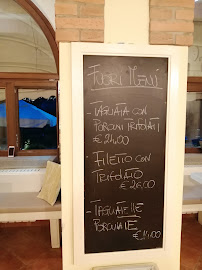 FUORI MENÙ
- TAGLIATA CON
PORCINI TRIFOLATI
€ 24,00
- FILETTO CON
TRIFOLATO
€ 26,00
- TAGLIATELLE
PORCINI E
€ 14,00